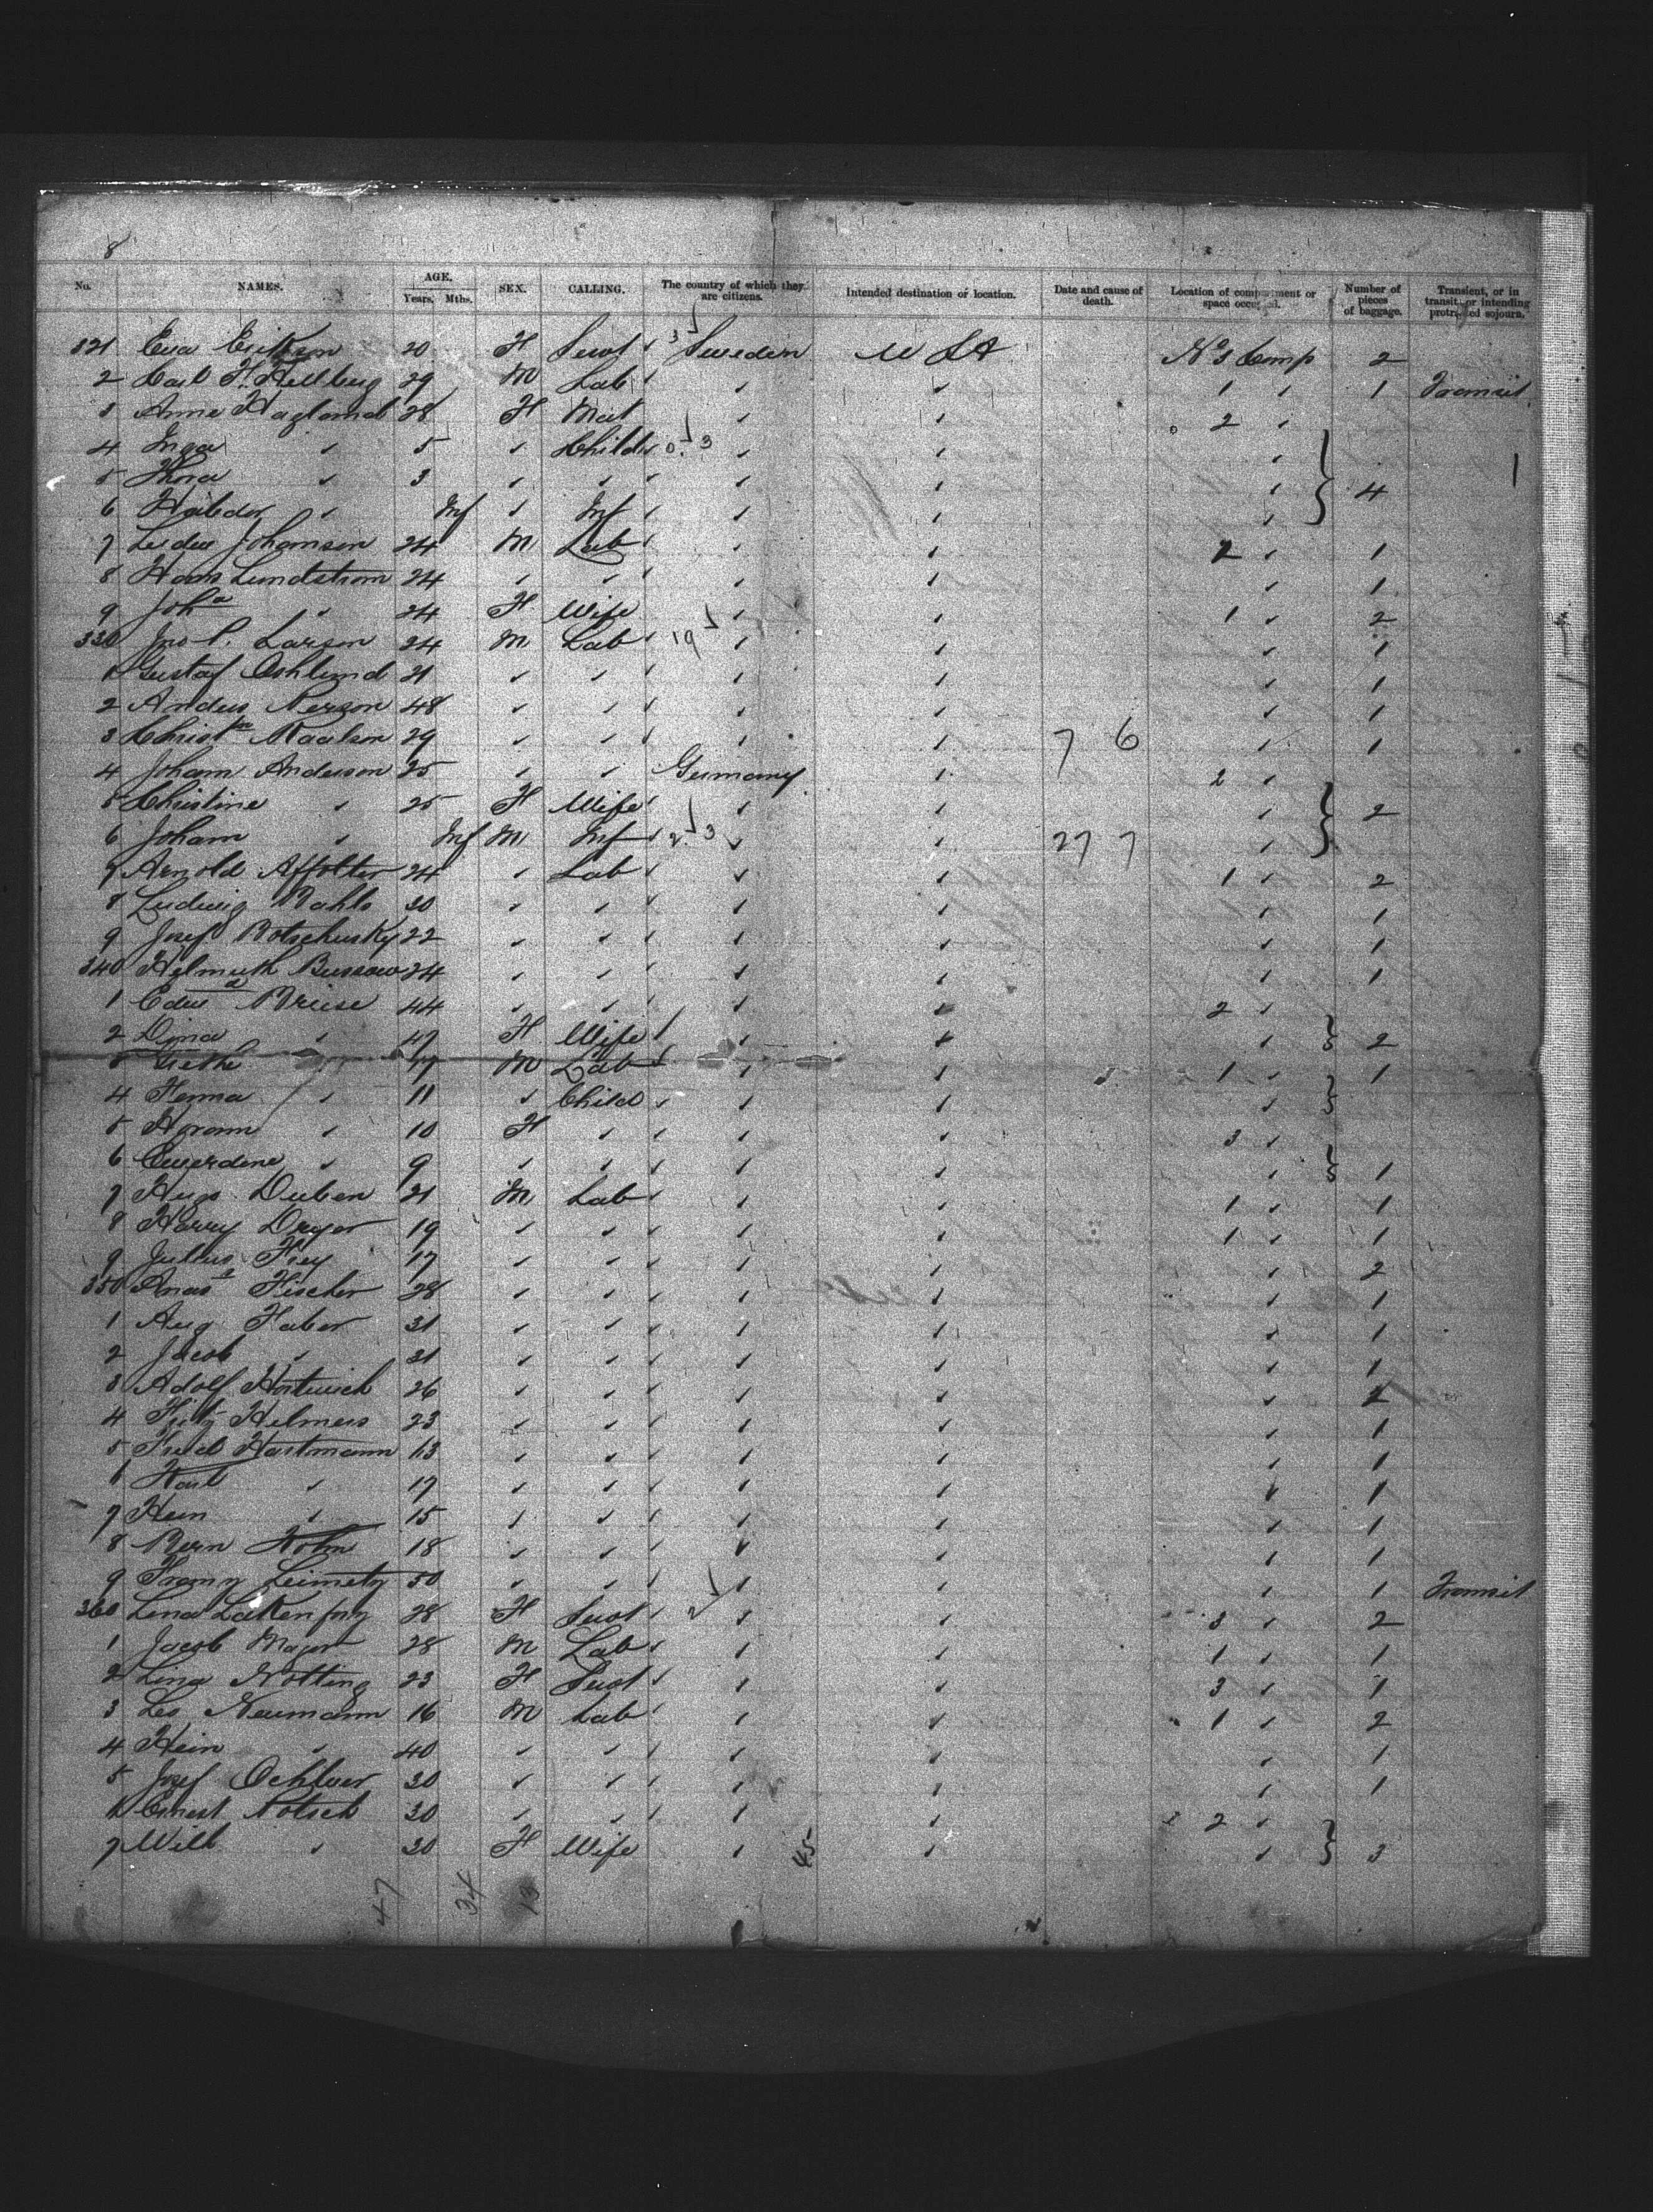 8
No. NAMES. AGE. Years. Mths. SEX. CALLING. The country of which they are citizens. Intended destination or location. Date and cause of death. Location of compartment or space occupied. Number of pieces of baggage. Transient, or in transit, or intending protracted sojourn.
321 Eva 20 F Servt 3 Sweden U S A No 3 Comp 2
2 Carl F. Hellberg 29 M Lab ✓ ✓ 1 1 Transit
3 Anna Haglund 28 F Mat ✓ ✓ 2 ✓
4 Inga ✓ 5 ✓ Child 0. 3 ✓ ✓ ✓
5 Thora ✓ 3 ✓ ✓ ✓ ✓ ✓ 4
6 ✓ Inf ✓ Inf ✓ ✓ ✓
7 Johanson 24 M Lab ✓ ✓ 2 ✓ 1
8 Lundstrom 24 ✓ ✓ ✓ ✓ ✓ 1
9 Joha ✓ 24 F Wife ✓ ✓ 1 ✓ 2
330 Jno P. Larson 24 M Lab 19 ✓ ✓ ✓ 1
1 Gustaf 21 ✓ ✓ ✓ ✓ ✓ 1
2 Anders 48 ✓ ✓ ✓ ✓ ✓ 1
3 29 ✓ ✓ ✓ ✓ 7 6 ✓ 1
4 Joham Anderson 25 ✓ ✓ Germany ✓ 2 ✓
5 Christine ✓ 25 F Wife ✓ ✓ ✓ 2
6 Joham ✓ Inf M Inf 2. 3 ✓ ✓ 27 7 ✓
7 Arnold Affolter 24 ✓ Lab ✓ ✓ 1 ✓ 2
8 Ludwig Bahls 20 ✓ ✓ ✓ ✓ ✓ 1
9 Josef Botschusky 22 ✓ ✓ ✓ ✓ ✓ 1
340 Helmuth Bussow 24 ✓ ✓ ✓ ✓ ✓ 1
1 Edwd Briese 44 ✓ ✓ ✓ ✓ 2 ✓
2 Dina ✓ 47 F Wife ✓ ✓ ✓ 2
3 17 M Lab ✓ ✓ 1 ✓ 1
4 ✓ 11 ✓ Child ✓ ✓ ✓
5 ✓ 10 F ✓ ✓ ✓ 3 ✓
6 ✓ 9 ✓ ✓ ✓ ✓ ✓ 1
7 Hugo Duben 21 M Lab ✓ ✓ 1 ✓ 1
8 Harry Dreyer 19 ✓ ✓ ✓ ✓ 1 ✓ 1
9 Julius Frey 17 ✓ ✓ ✓ ✓ ✓ 2
350 Fischer 28 ✓ ✓ ✓ ✓ ✓ 1
1 Aug Faber 31 ✓ ✓ ✓ ✓ ✓ 1
2 Jacob ✓ 21 ✓ ✓ ✓ ✓ ✓ 1
3 Adolf 26 ✓ ✓ ✓ ✓ ✓ 2
4 Fritz Helmers 23 ✓ ✓ ✓ ✓ ✓ 1
5 Fred Hartmann ✓ ✓ ✓ ✓ ✓ 1
6 Karl ✓ 17 ✓ ✓ ✓ ✓ ✓ 1
7 Hein ✓ 15 ✓ ✓ ✓ ✓ ✓ 1
8 Bern Hohn 18 ✓ ✓ ✓ ✓ ✓ 1
9 Franz 50 ✓ ✓ ✓ ✓ ✓ 1 Transit
360 Lena 28 F Servt 2 ✓ ✓ 3 ✓ 2
1 Jacob Major 28 M Lab ✓ ✓ 1 ✓ 1
2 Lina Notting 23 F Servt ✓ ✓ 3 ✓ 1
3 Leo Neumann 16 M Lab ✓ ✓ 1 ✓ 2
4 Hein ✓ 40 ✓ ✓ ✓ ✓ ✓ 1
5 Josef 30 ✓ ✓ ✓ ✓ ✓ 1
6 Ernest Potsch 30 ✓ ✓ ✓ ✓ 2 ✓
7 Wilh ✓ 30 F Wife ✓ ✓ ✓ 3
47 34 13 45